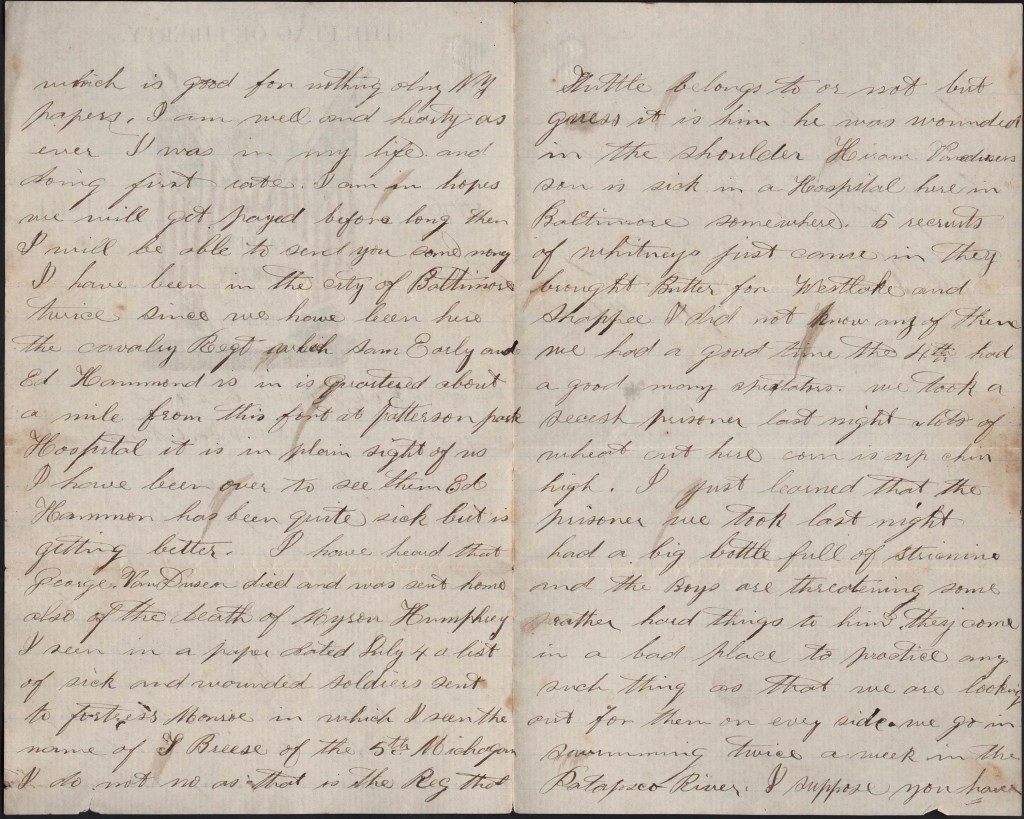 which is good for nothing olny NY
papers. I am well and hearty as
ever I was in my life and
doing first rate. I am in hopes
we will get payed before long then
I will be able to send you some mony
I have been in the city of Baltimore
twice since we have been here
the cavalry Regt which Sam Early and
Ed Hammond is in is quartered about
a mile from this fort at Patterson park
Hospital it is in plain sight of us
I have been over to see them Ed
Hammon has been quite sick but is
getting better. I have heard that
George VanDusen died and was sent home
also of the death of Myron Humphrey
I seen in a paper dated July 4 a list
of sick and wounded soldiers sent
to fortress Monroe in which I seen the
name of T Breese of the 5th Michagan
I do not no as that is the Reg that
Tuttle belongs to or not but
guess it is him he was wounded
in the shoulder Hiram Vandusens
son is sick in a Hospital here in
Baltimore somewhere. 5 recruits
of whitneys just came in they
brought Butter for Westlake and
Shappee I did not know any of them
we had a good time the 4th had
a good many spectators. we took a
secesh prisoner last night lots of
wheat cut here corn is up chin
high. I just learned that the
prisoner we took last night
had a big bottle full of
and the Boys are threatening some
rather hard things to him. they come
in a bad place to practice any
such thing as that we are looking
out for them on evry side. we go in
swimming twice a week in the
Patapsco River. I suppose you have